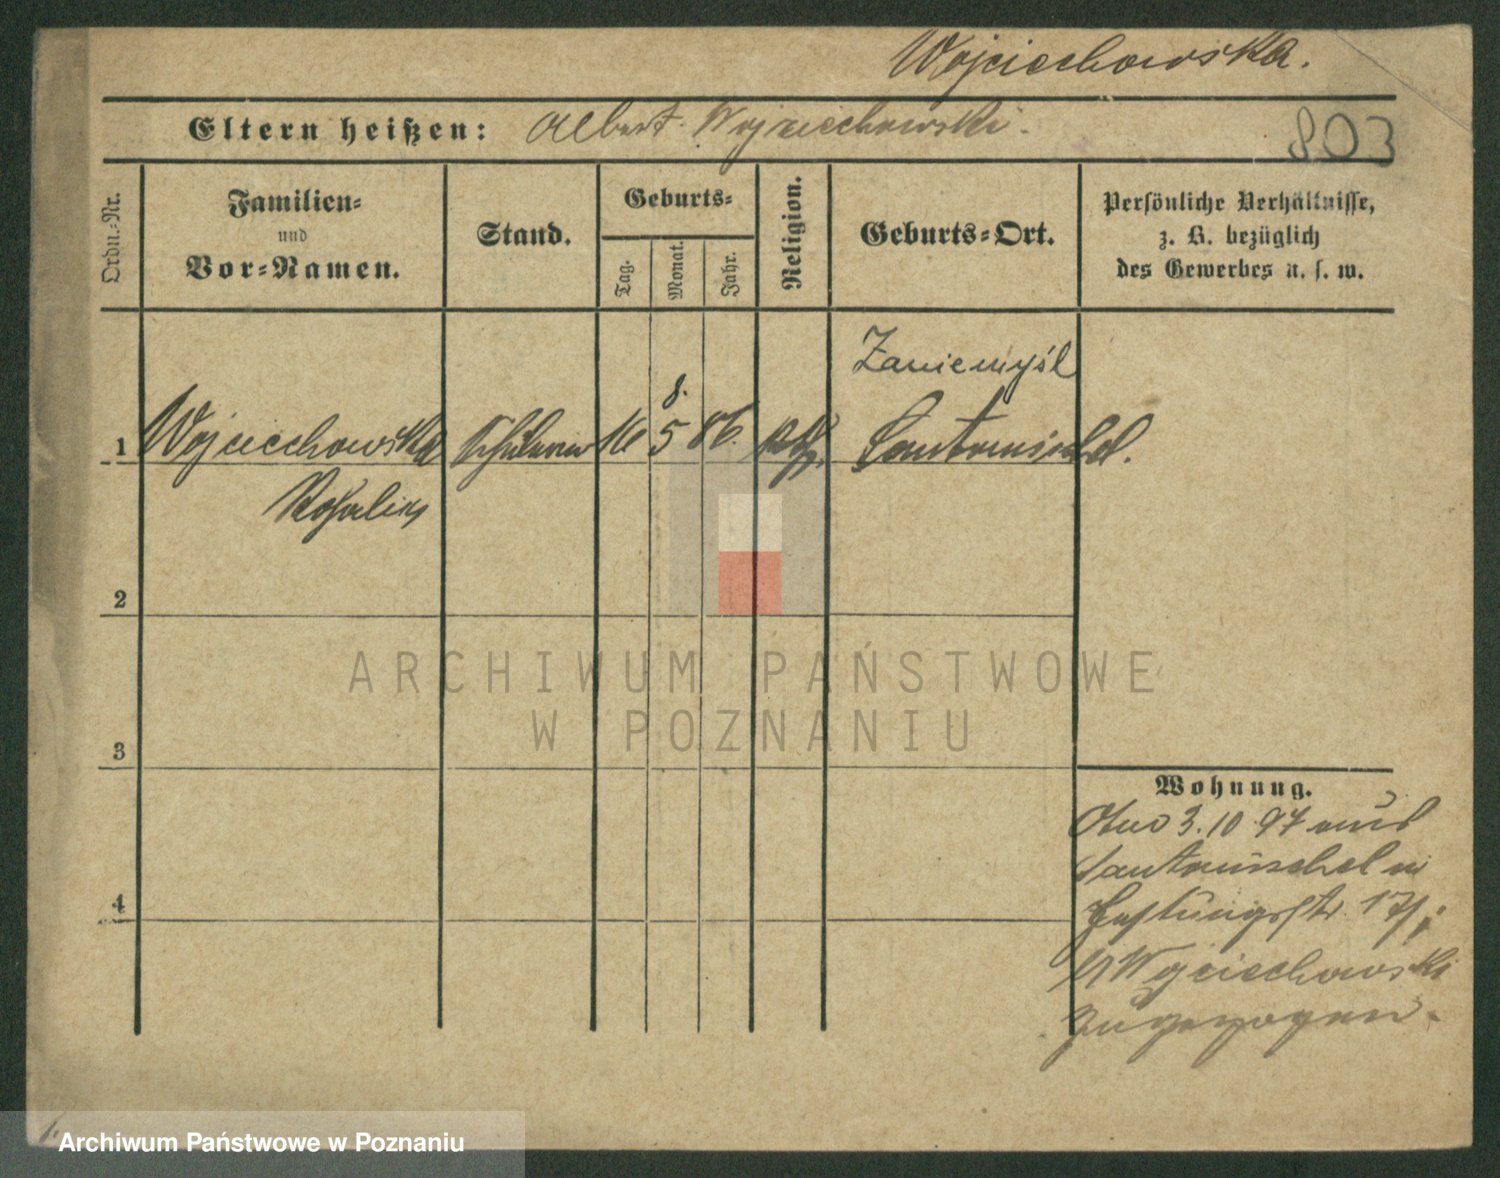 Wojciechowska.
Eltern heißen: Albert Wojciechowski.
803
Ordn.-Nr.
Familien-
und
Vor-Namen.
Stand.
Geburts-
Tag.
Monat.
Jahr.
Religion.
Geburts-Ort.
Persönliche Verhältnisse,
z. B. bezüglich
des Gewerbes u. s. w.
Zaniemyśl
8.
1 Wojciechowska Schülerin 16 5 86. kath. Santomischel.
Rosalie
2
3
4
Wohnung.
3.10 97 aus
Santomischel in
17
Wojciechowski
zugezogen.
ARCHIWUM PAŃSTWOWE
W POZNANIU
1.
Archiwum Państwowe w Poznaniu